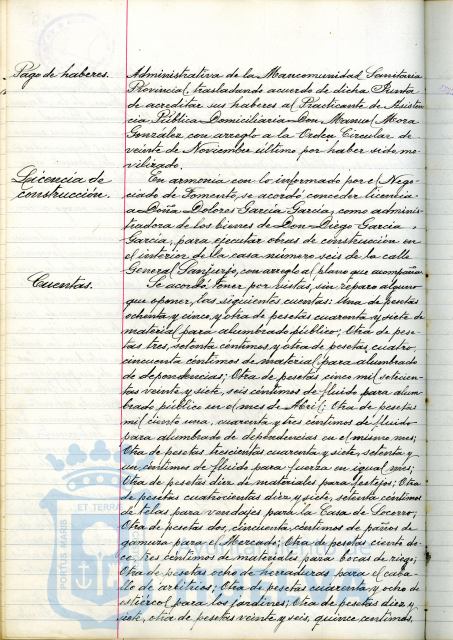 Pago de haberes.
Administrativa de la Mancomunidad Sanitaria
Provincial, trasladando acuerdo de dicha Junta
de acreditar sus haberes al Practicante de Asisten-
cia Pública Domiciliaria Don Manuel Mora
González con arreglo a la Orden Circular de
veinte de Noviembre último por haber sido mo-
vilizado.
Licencia de
construcción.
En armonia con lo informado por el Nego-
ciado de Fomento, se acordó conceder licencia
a Doña Dolores García García, como adminis-
tradora de los bienes de Don Diego García
García, para ejecutar obras de construcción en
el interior de la casa número seis de la calle
General Sanjurjo, con arreglo al plano que acompaña.
Cuentas.
Se acordó tener por vistas, sin reparo alguno
que oponer, las siguientes cuentas: Una de pesetas
ochenta y cinco, y otra de pesetas cuarenta y siete de
material para alumbrado público; Otra de pese-
tas tres, setenta céntimos, y otra de pesetas cuatro,
cincuenta céntimos de material para alumbrado
de dependencias; Otra de pesetas cinco mil setecien-
tas veinte y siete, seis céntimos de fluido para alum-
brado público en el mes de Abril; Otra de pesetas
mil ciento una, cuarenta y tres céntimos de fluido
para alumbrado de dependencias en el mismo mes;
Otra de pesetas trescientas cuarenta y siete, setenta y
un céntimos de fluido para fuerza en igual mes;
Otra de pesetas diez de materiales para festejos; Otra
de pesetas cuatrocientas diez y siete, setenta céntimos
de telas para vendajes para la Casa de Socorro;
Otra de pesetas dos, cincuenta céntimos de paños de
gamuza para el Mercado; Otra de pesetas ciento do-
ce, tres céntimos de materiales para bocas de riego;
Otra de pesetas ocho de herraduras para el caba-
llo de arbitrios; Otra de pesetas cuarenta y ocho de
estiércol para los jardines; Otra de pesetas diez y
siete, otra de pesetas veinte y seis, quince céntimos,
ET TERRA
PORTUS MARIS